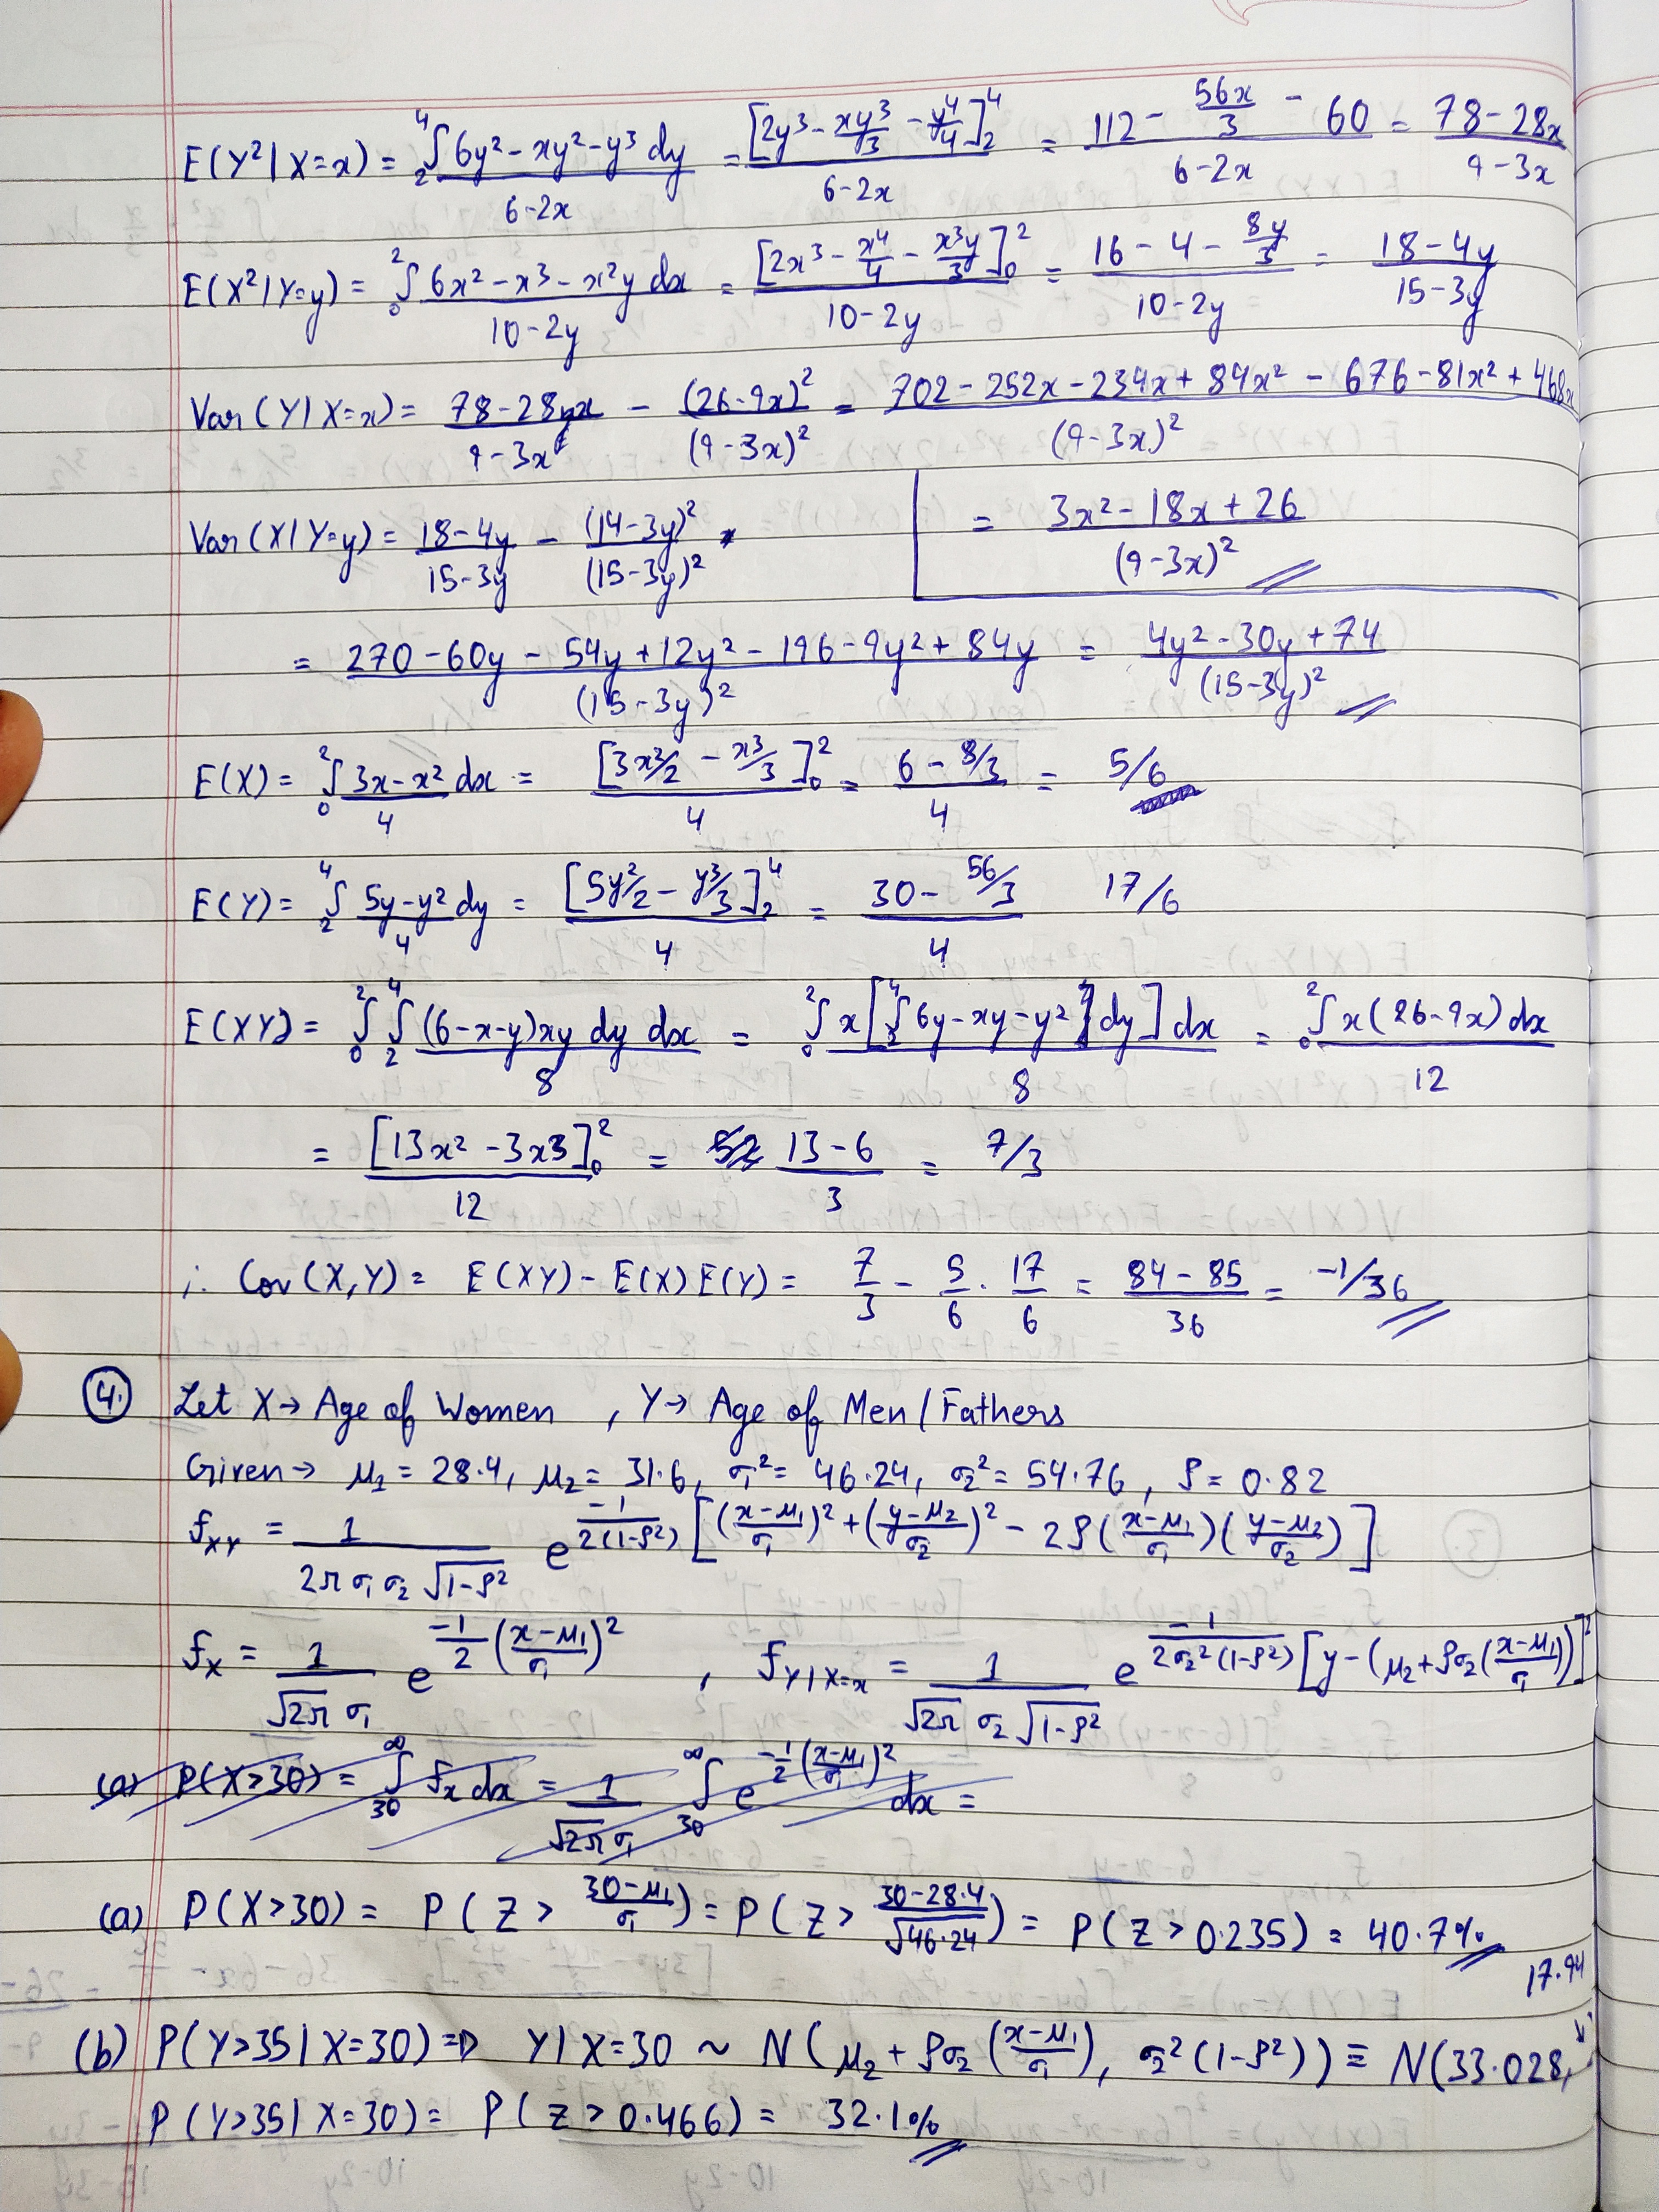 E(Y²|X=x) = ₂∫⁴ (6y² - xy² - y³ dy)/(6-2x) = [2y³ - xy³/3 - y⁴/4]₂⁴/(6-2x) = (112 - 56x/3 - 60)/(6-2x) = (78-28x)/(9-3x)
E(X²|Y=y) = ₀∫² (6x² - x³ - x²y dx)/(10-2y) = [2x³ - x⁴/4 - x³y/3]₀²/(10-2y) = (16 - 4 - 8y/3)/(10-2y) = (18-4y)/(15-3y)
Var(Y|X=x) = (78-28x)/(9-3x) - (26-9x)²/(9-3x)² = (702 - 252x - 234x + 84x² - 676 - 81x² + 468x)/(9-3x)²
= (3x² - 18x + 26)/(9-3x)²
Var(X|Y=y) = (18-4y)/(15-3y) - (14-3y)²/(15-3y)²
= (270 - 60y - 54y + 12y² - 196 - 9y² + 84y)/(15-3y)² = (4y² - 30y + 74)/(15-3y)²
E(X) = ₀∫² (3x-x²)/4 dx = [3x²/2 - x³/3]₀²/4 = (6 - 8/3)/4 = 5/6
E(Y) = ₂∫⁴ (5y-y²)/4 dy = [5y²/2 - y³/3]₂⁴/4 = (30 - 56/3)/4 17/6
E(XY) = ₀∫² ₂∫⁴ (6-x-y)xy dy dx/8 = ₀∫² x[₂∫⁴ 6y-xy-y² dy] dx/8 = ₀∫² x(26-9x) dx/12
= [13x² - 3x3]₀²/12 = (13-6)/3 = 7/3
∴ Cov(X,Y) = E(XY) - E(X)E(Y) = 7/3 - 5/6 · 17/6 = (84-85)/36 = -1/36
4. Let X → Age of Women , Y → Age of Men/Fathers
Given → μ₁ = 28.4, μ₂ = 31.6, σ₁² = 46.24, σ₂² = 54.76, ρ = 0.82
f_XY = 1/(2π σ₁ σ₂ √(1-ρ²)) e^(-1/(2(1-ρ²)) [((x-μ₁)/σ₁)² + ((y-μ₂)/σ₂)² - 2ρ((x-μ₁)/σ₁)((y-μ₂)/σ₂)])
f_X = 1/(√2π σ₁) e^(-1/2 ((x-μ₁)/σ₁)²) , f_Y|X=x = 1/(√2π σ₂ √(1-ρ²)) e^(-1/(2σ₂²(1-ρ²)) [y - (μ₂ + ρσ₂((x-μ₁)/σ₁))]²)
(a) P(X>30) = ₃₀∫^∞ f_x dx = 1/(√2π σ₁) ₃₀∫^∞ e^(-1/2 ((x-μ₁)/σ₁)²) dx =
(a) P(X>30) = P(Z > (30-μ₁)/σ₁) = P(Z > (30-28.4)/√46.24) = P(Z > 0.235) = 40.7%
17.94
(b) P(Y>35|X=30) ⇒ Y|X=30 ~ N(μ₂ + ρσ₂((x-μ₁)/σ₁), σ₂²(1-ρ²)) ≡ N(33.028,
P(Y>35|X=30) = P(Z > 0.466) = 32.1%